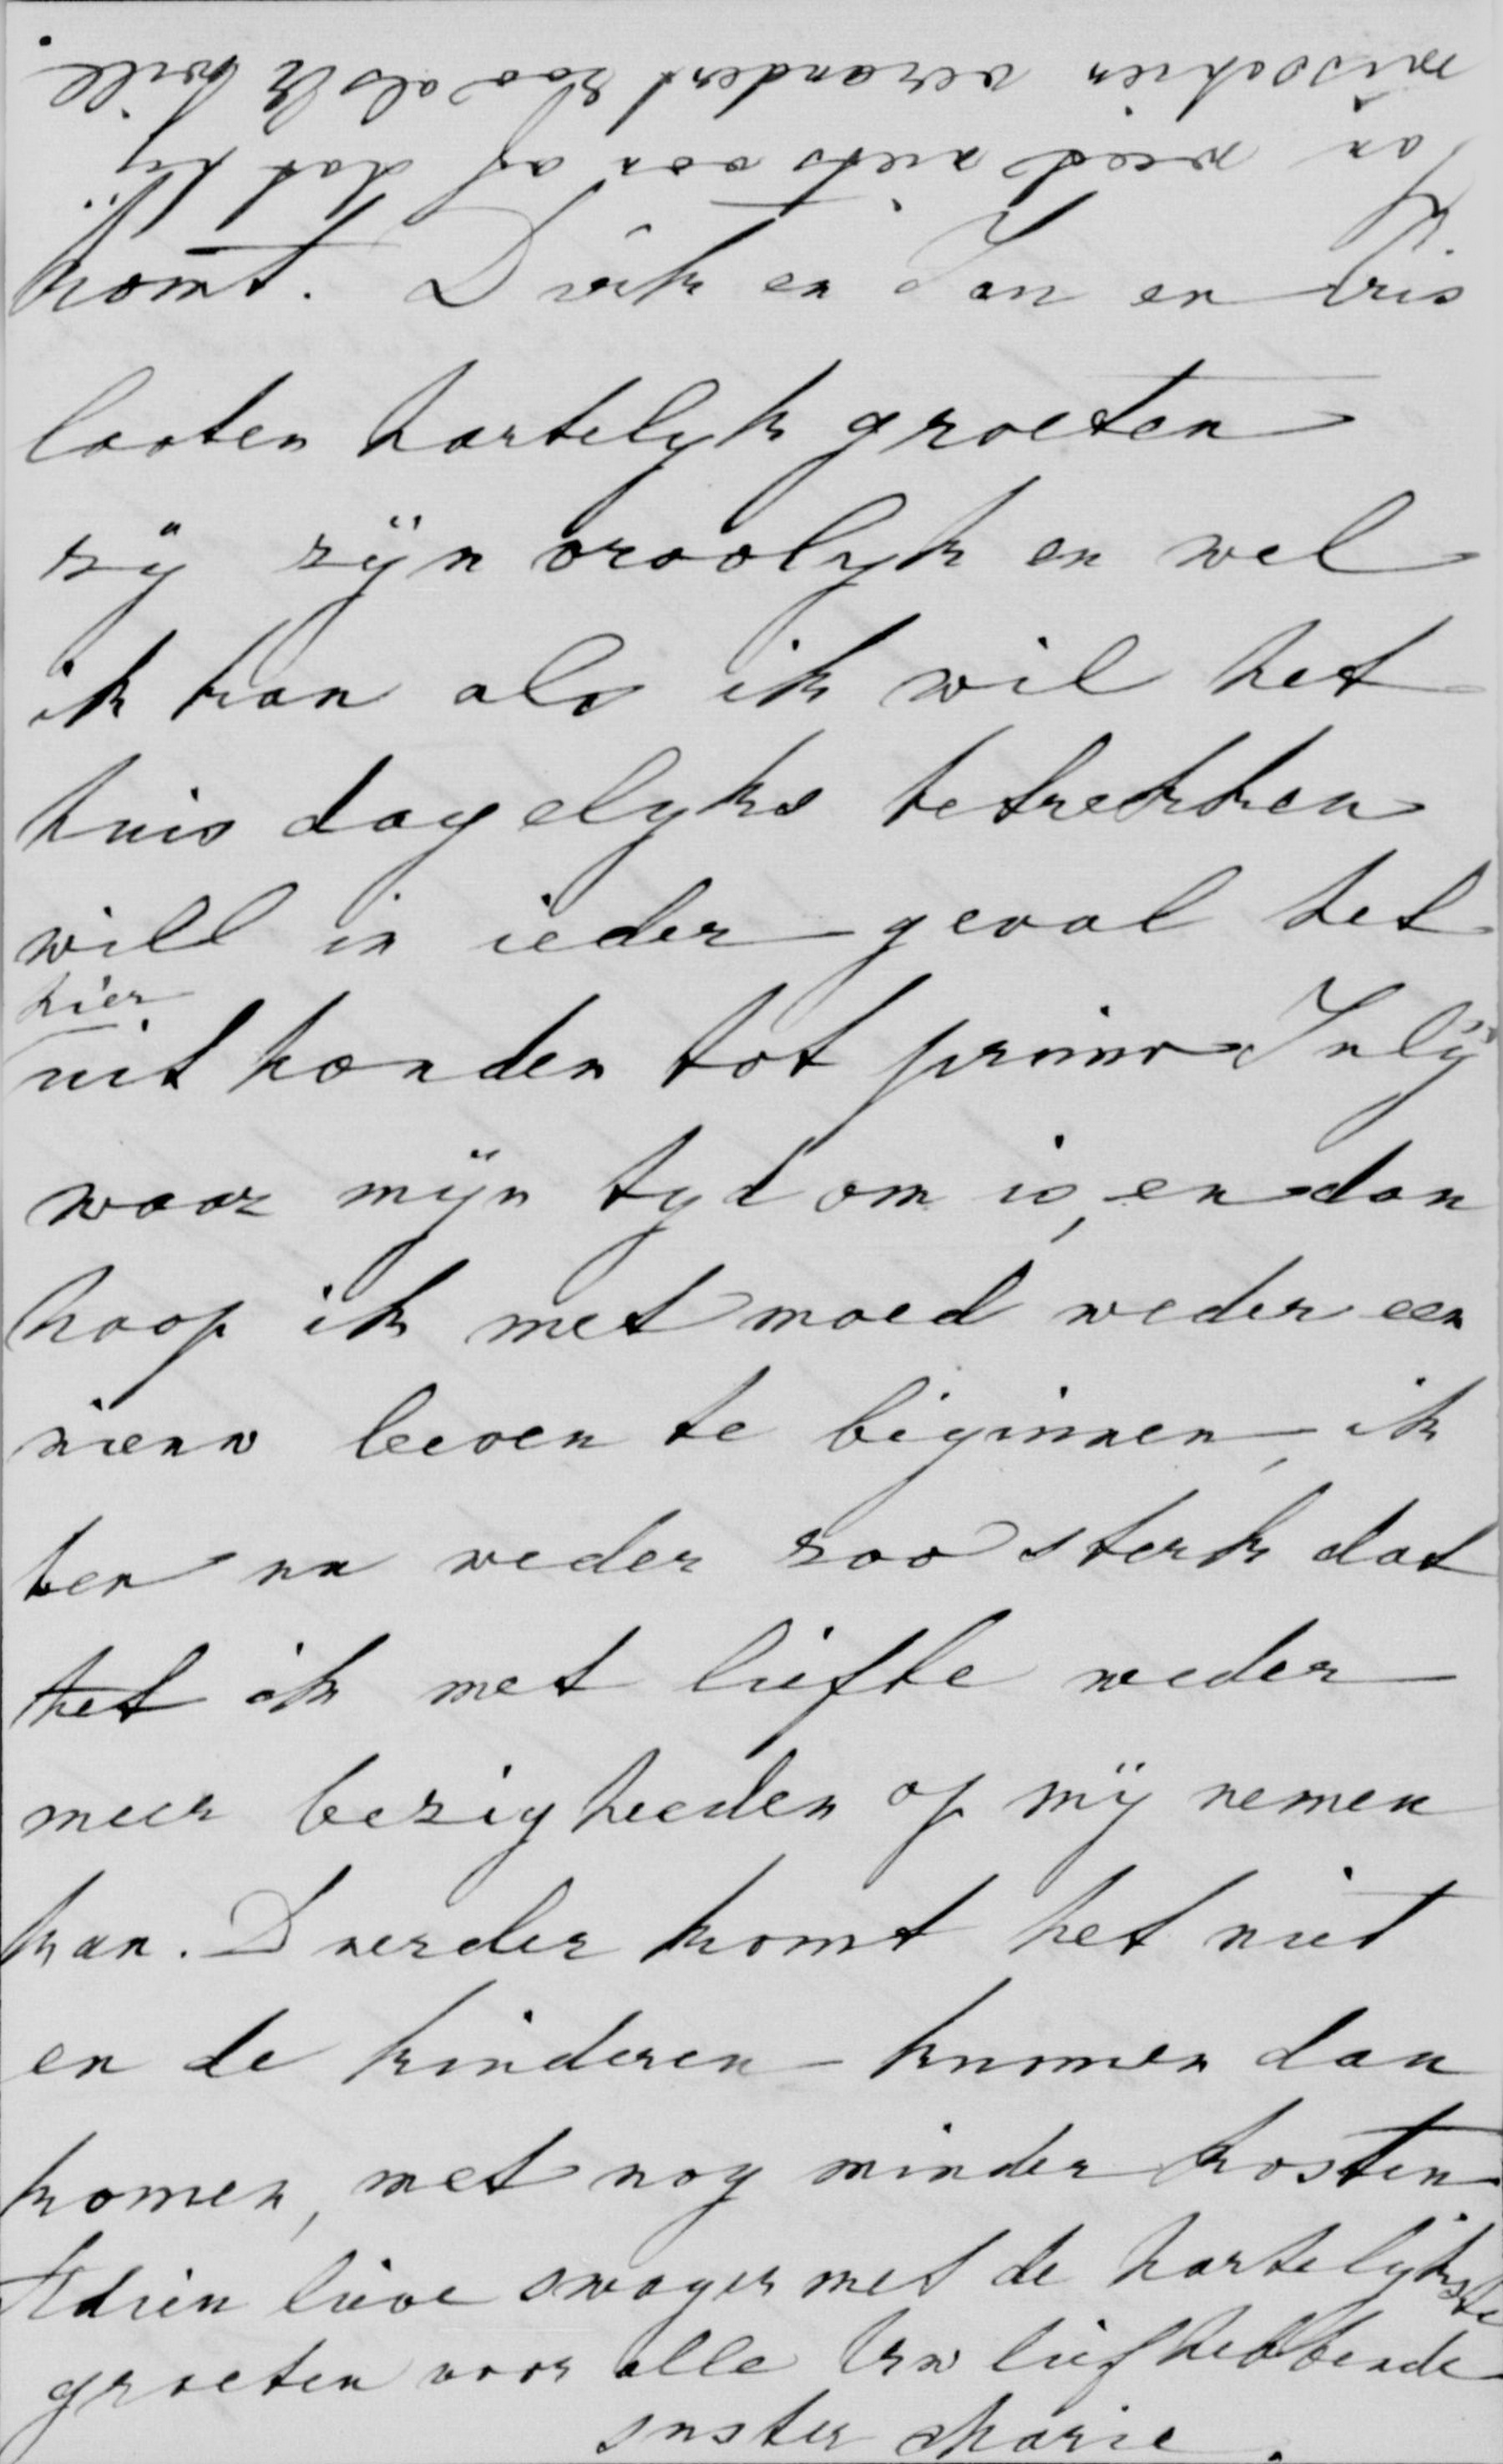 komt. Dirk en Jan en Kris
laaten hartelyk groeten
zÿ zÿn vroolyk en wel
ik kan als ik wil het
huis dagelyks betrekken
will in ieder geval het
hier
uit houden tot primo Julÿ
waar mÿn tyd om is, en dan
hoop ik met moed weder een
nieuw leeven te biginnen, ik
ben nu weder zoo sterk dat
het ik met liefte weder
meer bezigheeden op mÿ nemen
kan. Duurder komt het niet
en de kinderen kunnen dan
komen, met nog minder kosten.
Adieu lieve swager met de hartelijkste
groeten voor alle Uw liefhebbende
suster Marie.
Jan weed niets van af dat hÿ
misschien verandert zoo als U will